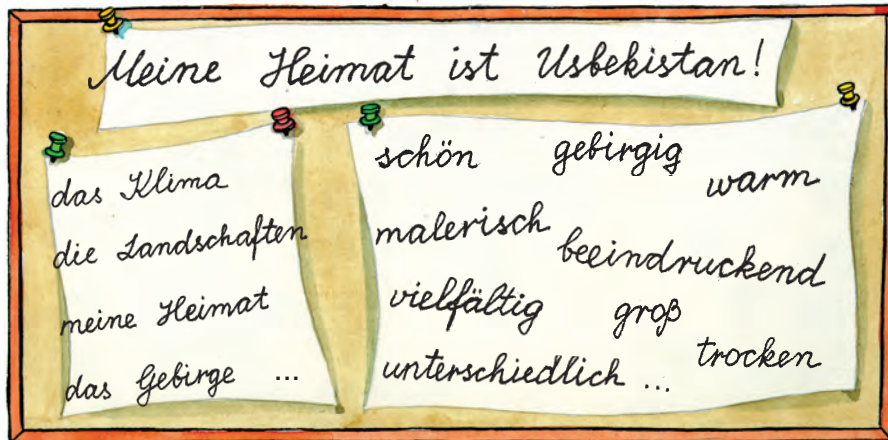 Meine Heimat ist Usbekistan!
das Klima
die Landschaften
meine Heimat
das Gebirge ...
schön gebirgig
warm
malerisch
beeindruckend
vielfältig groß
trocken
unterschiedlich ...